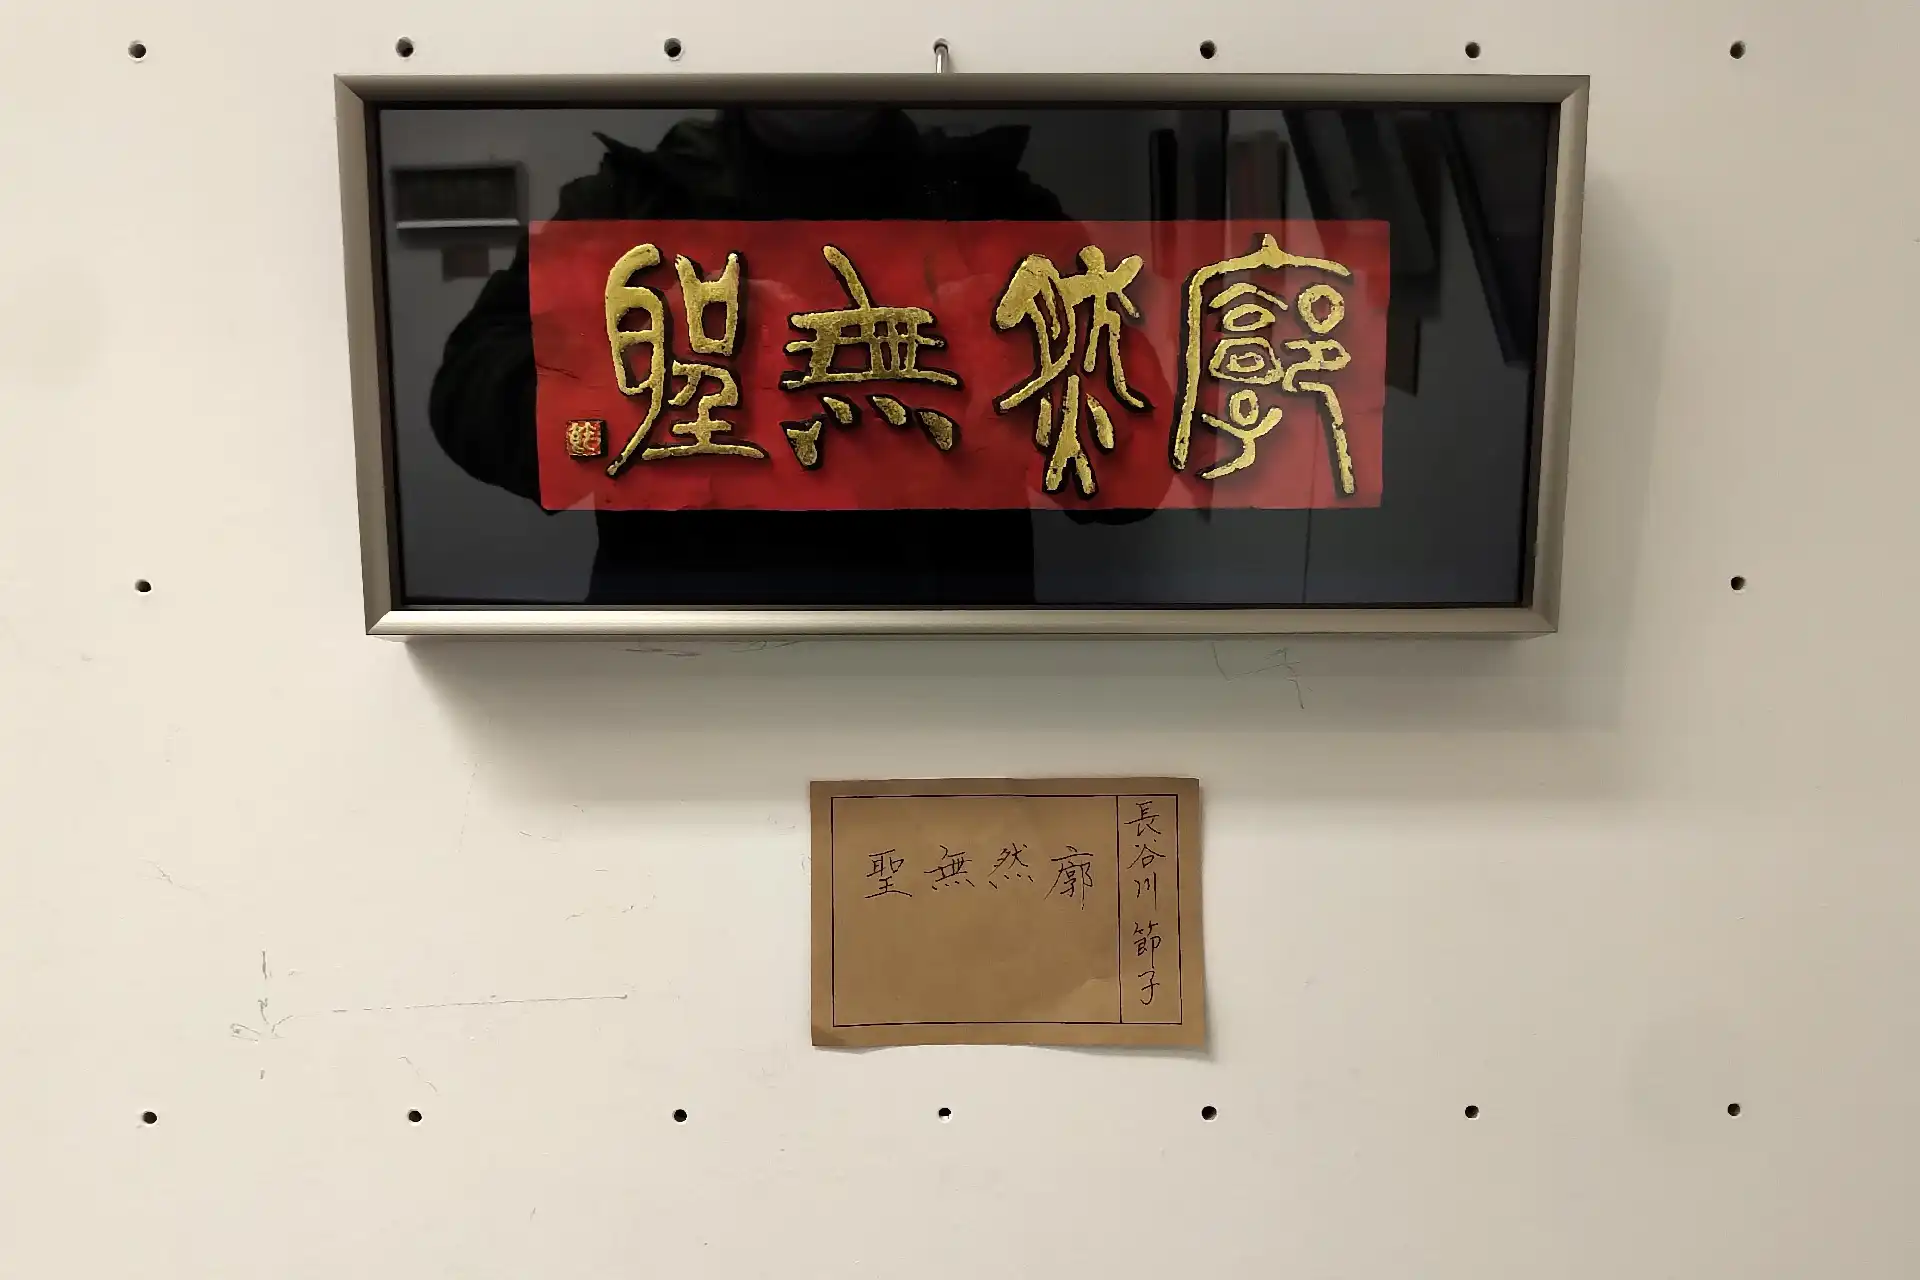 廓然無聖
長谷川 節子
廓然無聖